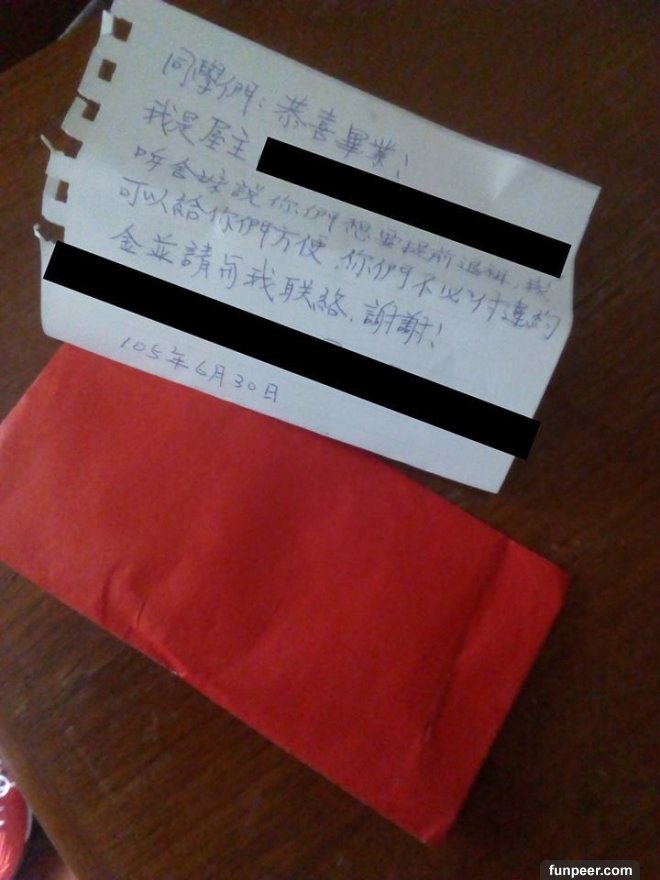 同學們:恭喜畢業!
我是屋主
你們想要提前退租,我
可以給你們方便,你們不必付違約
金並請與我联絡,謝謝!
105年6月30日
funpeer.com